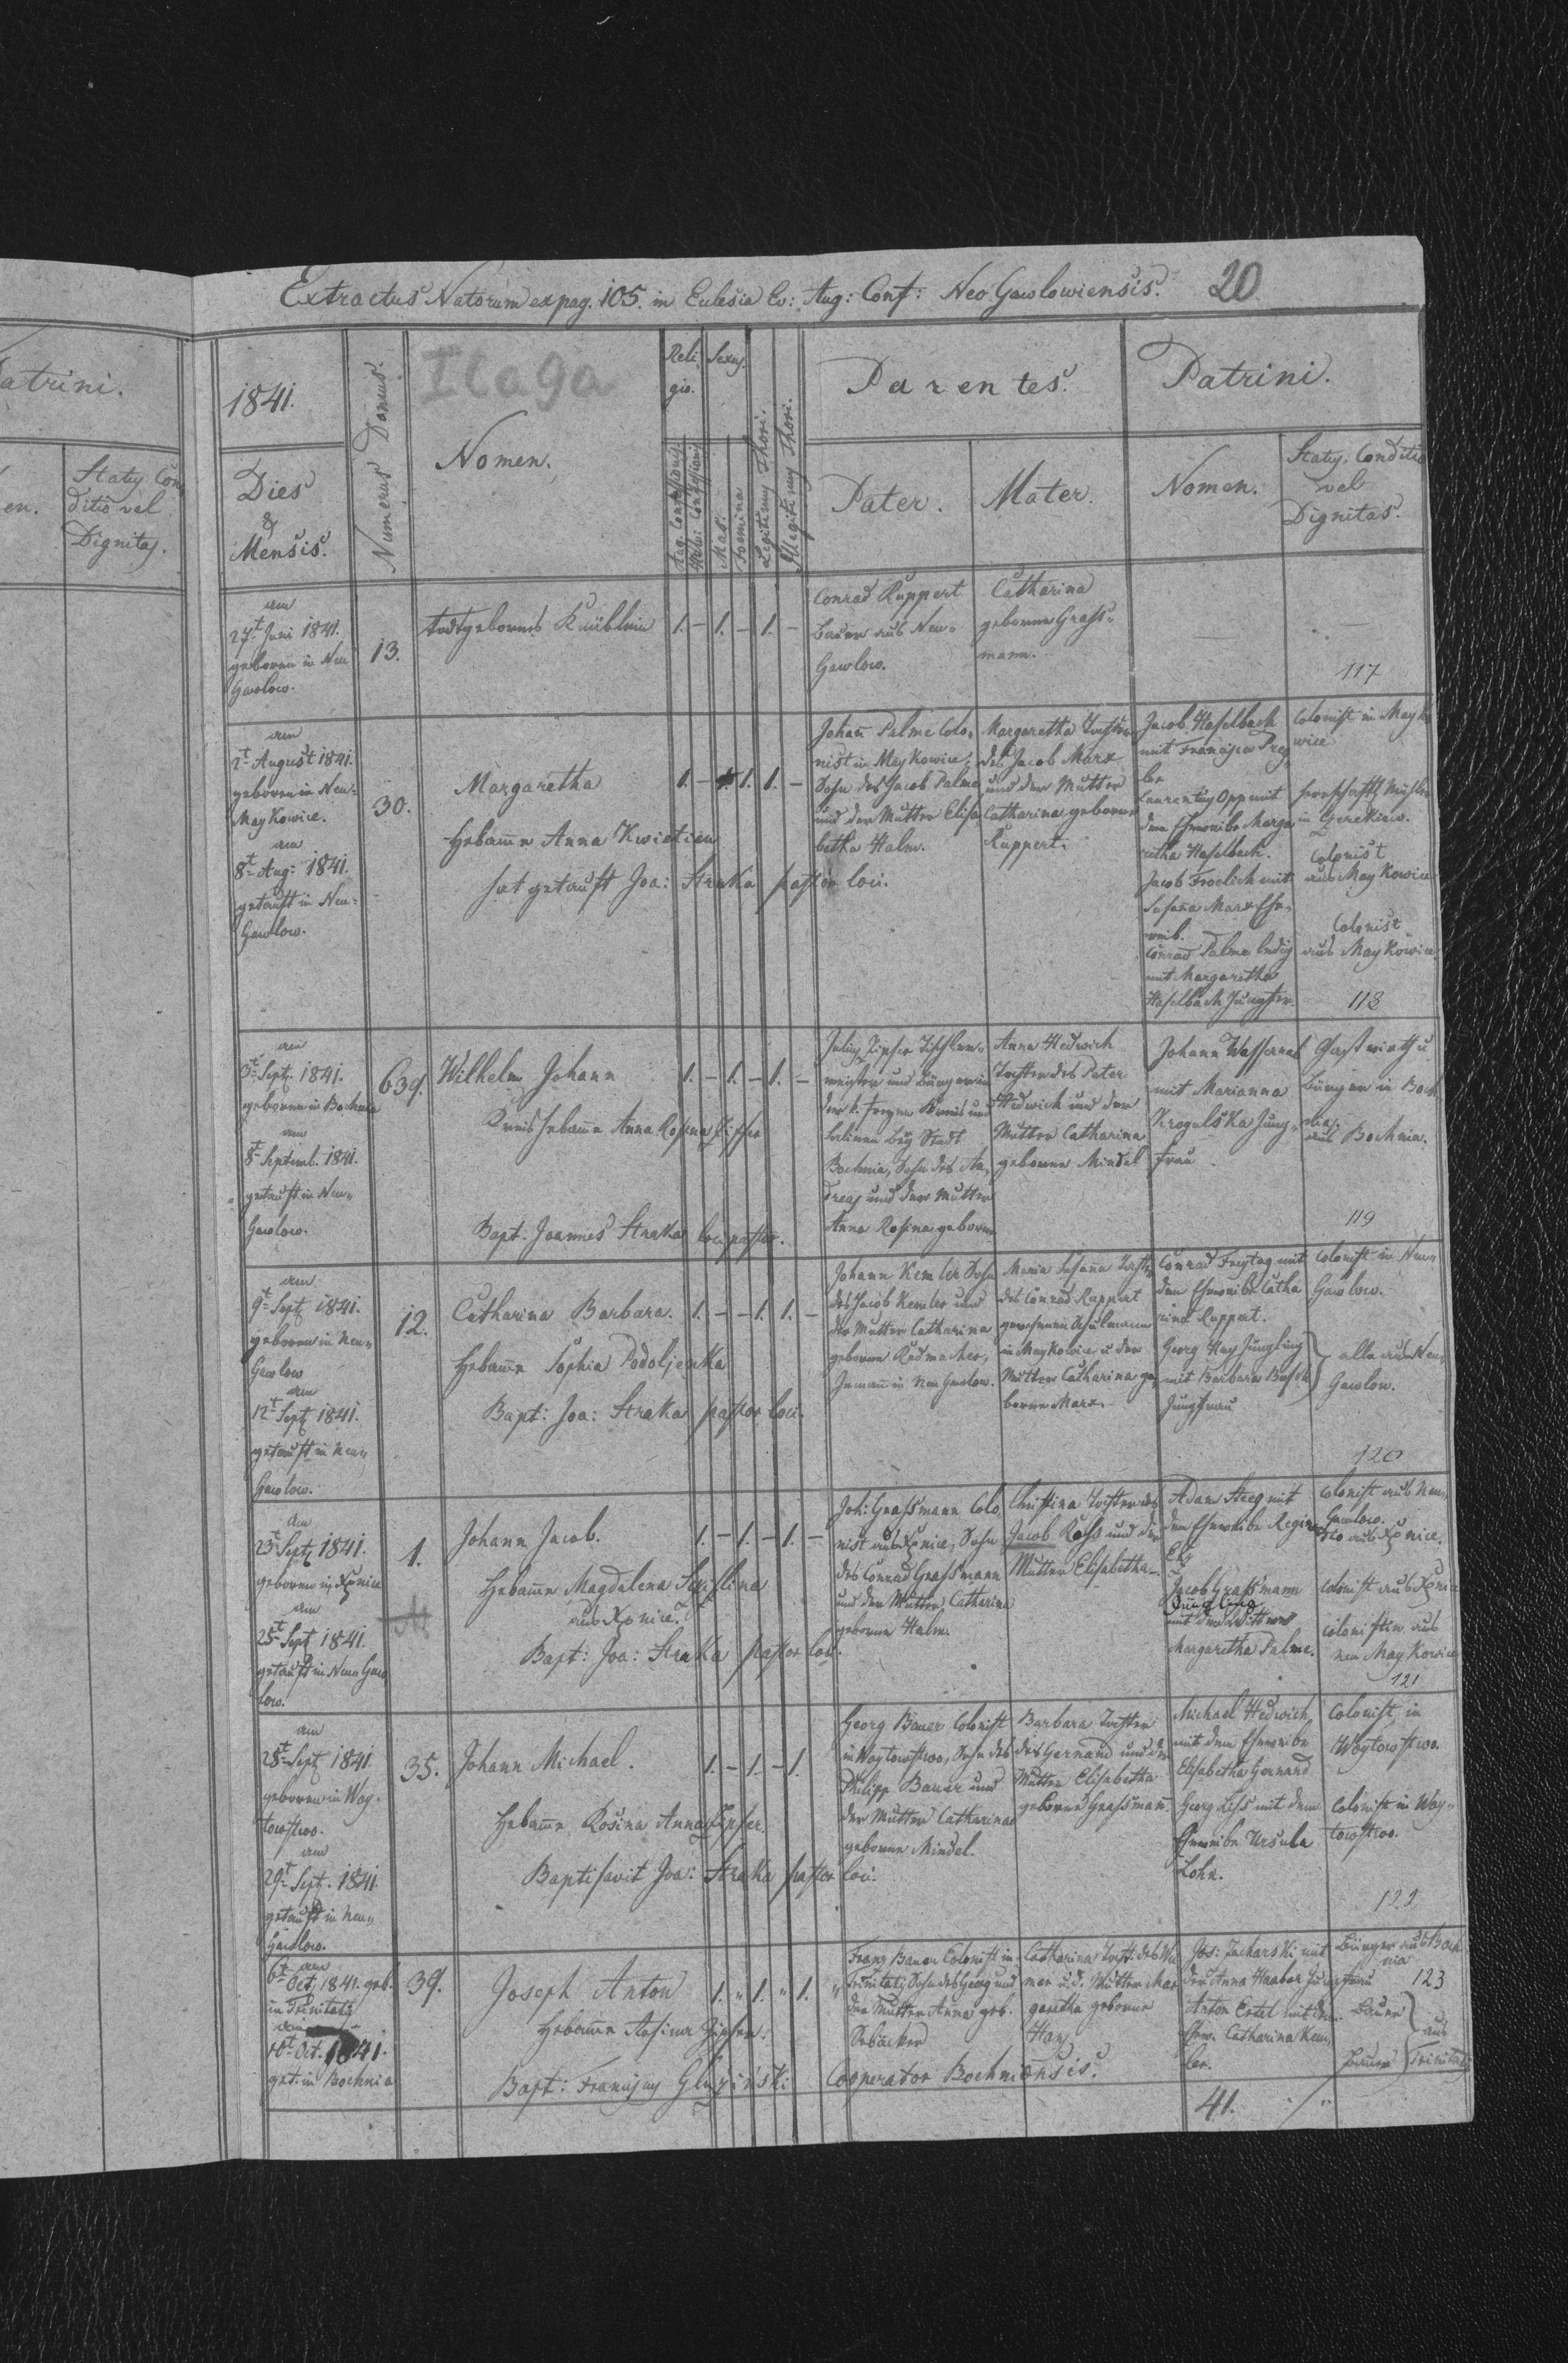 Extractus Natorum ex pag. 105. in Eclesia Ev: Aug: Conf: Neo Gawlowiensis. 20
atrini.
en.
Status Con
ditio vel
Dignitas.
1841.
Dies
&
Mensis.
Numerus Domus.
Ilaga
Nomen.
Reli
gio.
Sexus.
Aug. Confessionis
Helv: Confessionis
Mas.
Foemina
Legitimy Thori.
Illegitimy Thori.
Parentes.
Pater.
Mater.
Patrini.
Nomen.
Status, Conditio
vel
Dignitas.
am
27t Juni 1841.
geboren in Neu
Gawlow.
13.
todtgebornes Knäblein
1. – 1. – 1. –
Conrad Ruppert
Bauer aus Neu-
Gawlow.
Catharina
geborne Grass-
mann.
117
am
2t August 1841.
geboren in Neu-
MayKowice.
am
8t Aug: 1841.
getauft in Neu-
Gawlow.
30.
Margaretha
1. – 1. 1. –
Hebame Anna Kwietien
hat getauft Joa: Straka pastor loci.
Johan Palme Colo-
nist in MayKowice,
Sohn des Jacob Palme
und der Mutter Elisa-
betha Halm.
Margaretha Tochter
des Jacob Marx
und der Mutter
Catharina geborne
Ruppert.
Jacob Haselbach
mit Francisca
Laurentius Opp mit
dem Eheweibe Marga
retha Haselbach.
Jacob Froelich mit
Susana Marx Ehe-
weib.
Conrad Palme ledig
mit Margaretha
Haselbach Jungfer.
Colonist in MayKo
wice
herrschaftl Müller
in
Colonist
aus MayKowice
Colonist
aus MayKowice
118
am
3t Sept. 1841.
geboren in Bochnia
am
8t Septemb. 1841.
getauft in Neu-
Gawlow.
639.
Wilhelm Johann
1. – 1. – 1. –
Kreishebame Anna Rosina Zipser
Bapt: Joannes Straka loci pastor.
Julius Zipser Tischler-
meister und Bürger in
der k. freyen Kreis und
Salinen Berg Stadt
Bochnia, Sohn des An-
dreas und der Mutter
Anna Rosina geborne
Anna Hedwich
Tochter des Peter
Hedwich und der
Mutter Catharina
geborne Mindel
Johann Wasserab
mit Marianna
Krogulska Jung-
frau
Gastwirth u
Bürger in Boch
nia,
aus Bochnia.
119
am
9t Sept 1841.
geboren in Neu-
Gawlow
am
12t Sept 1841.
getauft in Neu-
Gawlow.
12.
Catharina Barbara.
1. – – 1. 1. –
Hebame Sophia Podoljenka
Bapt: Joa: Straka pastor loci.
Johann Kemler Sohn
des Jacob Kemler und
der Mutter Catharina
geborne Radmacher,
Inman in Neu Gawlow.
Maria Susana Tochter
des Conrad Ruppert
gewesenen Schulmann
in MayKowice u der
Mutter Catharina ge-
borne Marx.
Conrad Freytag mit
dem Eheweibe Catha
rina Ruppert.
Georg Hay Jüngling
mit Barbara Busch
Jungfrau
Colonist in Neu-
Gawlow.
alle aus Neu-
Gawlow.
120
am
23t Sept 1841.
geboren in Xpnice
am
25t Sept 1841.
getauft in Neu Gaw
low.
1.
Johann Jacob.
1. – 1. – 1. –
Hebame Magdalena
aus Xpnice.
Bapt: Joa: Straka pastor loci.
Joh: Grassmann Colo-
nist aus Xpnice, Sohn
des Conrad Grassmann
und der Mutter Catharina
geborne Halm.
Christina Tochter des
Jacob Kohs und der
Mutter Elisabetha
Adam Steeg mit
dem Eheweibe Regina
Jacob Grassmann
Jüngling
mit der
Margaretha Palme.
Colonist aus Neu-
Gawlow.
aus Xpnice.
Colonist aus Xpnice
Colonistin aus
neu MayKowice
121
am
28t Sept 1841
geboren in Woy-
towstwo.
am
29t Sept. 1841.
getauft in Neu-
Gawlow.
35.
Johann Michael.
1. – 1. – 1.
Hebame Rosina Anna Zipser.
Baptisavit Joa: Straka pastor loci.
Georg Bauer Colonist
in Woytowstwo, Sohn des
Philipp Bauer und
der Mutter Catharina
geborne Mindel.
Barbara Tochter
des Gernand und der
Mutter Elisabetha
geborne Grassman.
Michael Hedwich
mit dem Eheweibe
Elisabetha Gernand
Georg Hess mit dem
Eheweibe Ursula
Lohn.
Colonist in
Woytowstwo.
Colonist in Woy-
towstwo.
122
6t am
Oct. 1841. geb.
in Trinitatis
am
10t Oct. 1841.
get. in Bochnia
39.
Joseph Anton
1. " 1. " 1. "
Hebame Rosina Zipser.
Bapt: Franciscus Cooperator Bochniensis.
Franz Bauer Colonist in
Trinitatis Sohn des Georg und
der Mutter Anna geb.
Catharina Tocht. des
u.d. Mutter Mar
garetha geborne
Hay
Jos: Zacharski mit
der Anna Haaber Jungfrau
Anton Ertel mit dem
Ehew. Catharina Kem-
ler.
Bürger aus Boch
nia
123
Bauer
Bauer
aus
Trinitatis
41.